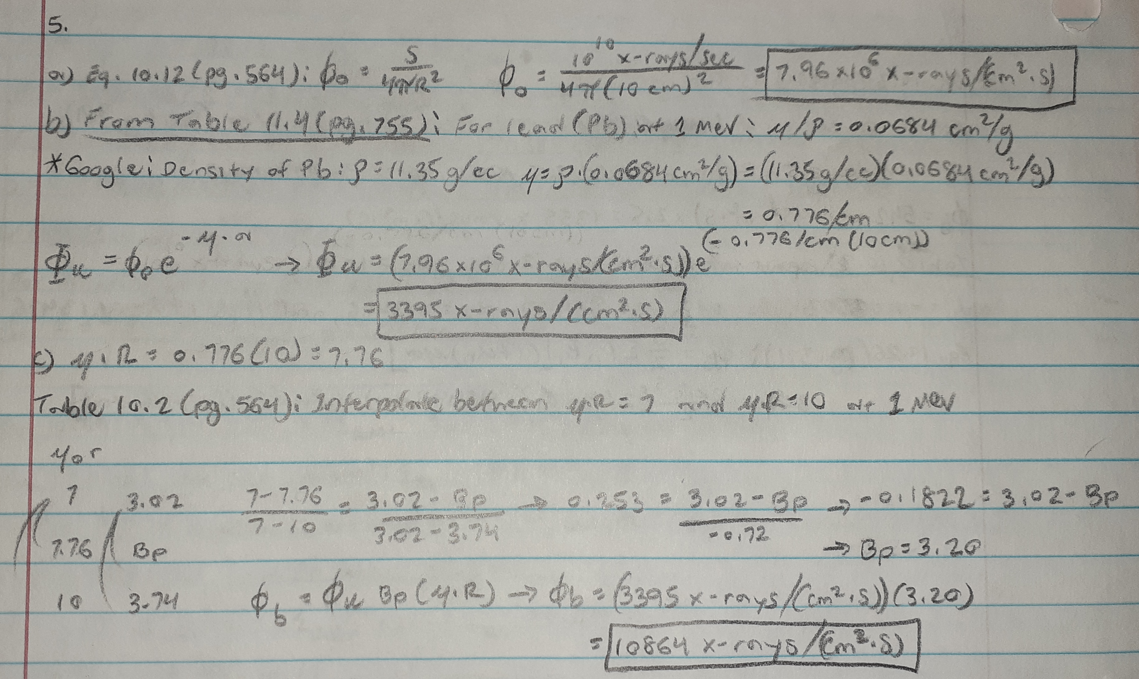 5.
a) Eq. 10.12 (pg. 564): ϕ₀ = S/4πR² ϕ₀ = 10¹⁰ x-rays/sec / 4π(10 cm)² = 7.96x10⁶ x-rays/(cm²·s)
b) From Table 11.4 (pg. 755): For lead (Pb) at 1 MeV: μ/ρ = 0.0684 cm²/g
*Google: Density of Pb: ρ = 11.35 g/cc μ = ρ·(0.0684 cm²/g) = (11.35 g/cc)(0.0684 cm²/g)
= 0.776/cm
Φᵤ = ϕ₀e^(-μ·a) → Φᵤ = (7.96x10⁶ x-rays/(cm²·s))e^(-0.776/cm (10cm))
= 3395 x-rays/(cm²·s)
c) μ·R = 0.776(10) = 7.76
Table 10.2 (pg. 564): Interpolate between μR = 7 and μR = 10 at 1 MeV
μor
7 3.02 7-7.76/7-10 = 3.02-Bp/3.02-3.74 → 0.253 = 3.02-Bp/-0.72 → -0.1822 = 3.02-Bp
7.76 Bp → Bp = 3.20
10 3.74 ϕb = ϕᵤ Bp(μ·R) → ϕb = (3395 x-rays/(cm²·s))(3.20)
= 10864 x-rays/(cm²·s)